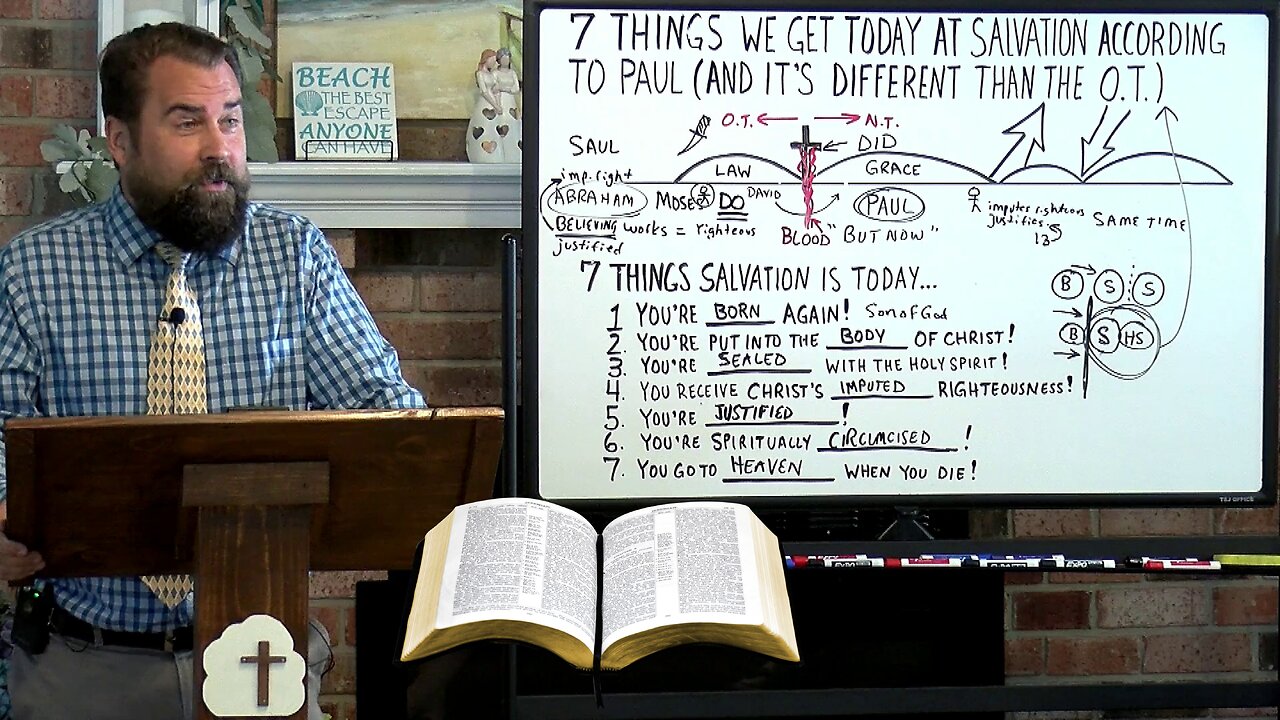 BEACH
THE BEST
ESCAPE
ANYONE
CAN HAVE
7 THINGS WE GET TODAY AT SALVATION ACCORDING
TO PAUL (AND IT'S DIFFERENT THAN THE O.T.)
O.T. N.T.
SAUL DID
imp. right LAW GRACE
ABRAHAM MOSES DO DAVID PAUL
BELIEVING works = righteous BLOOD "BUT NOW"
justified
imputes righteous
justifies SAME TIME
7 THINGS SALVATION IS TODAY...
1 YOU'RE BORN AGAIN! Son of God
2. YOU'RE PUT INTO THE BODY OF CHRIST!
3. YOU'RE SEALED WITH THE HOLY SPIRIT!
4. YOU RECEIVE CHRIST'S IMPUTED RIGHTEOUSNESS!
5. YOU'RE JUSTIFIED!
6. YOU'RE SPIRITUALLY CIRCUMCISED!
7. YOU GO TO HEAVEN WHEN YOU DIE!
B S S
B S HS
EXPO